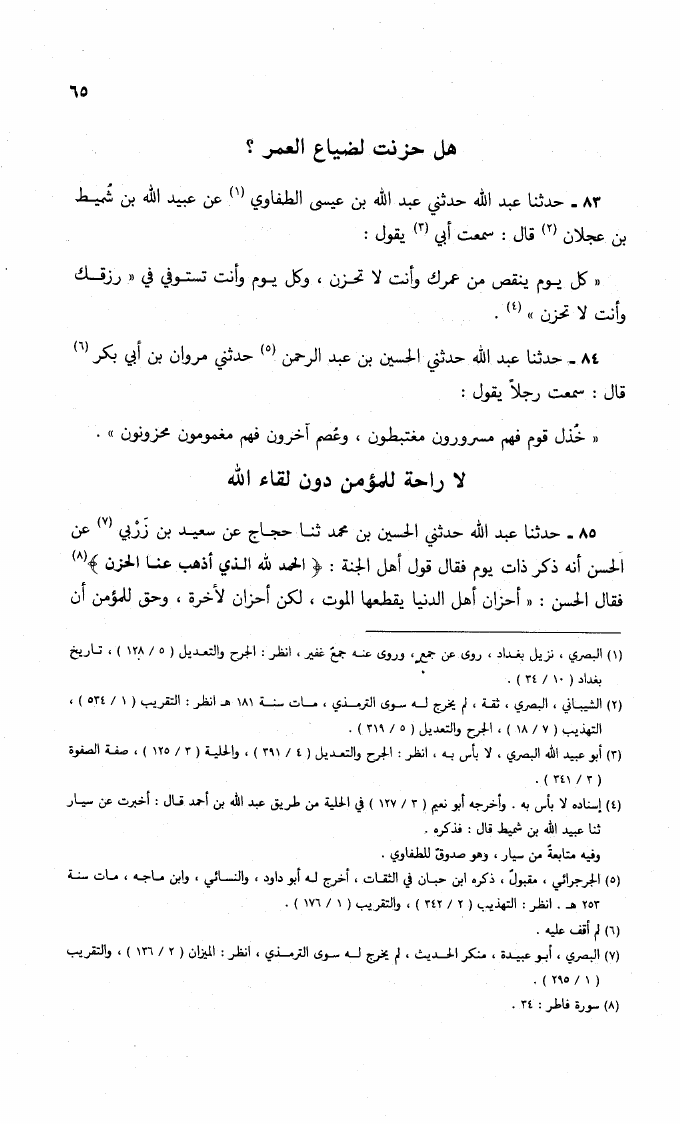 ٦٥
هل حزنت لضياع العمر ؟
٨٣ ـ حدثنا عبد الله حدثني عبد الله بن عيسى الطفاوي (١) عن عبيد الله بن شُميط
بن عجلان (٢) قال : سمعت أبي (٣) يقول :
« كل يوم ينقص من عمرك وأنت لا تحزن ، وكل يوم وأنت تستوفي في « رزقك
وأنت لا تحزن » (٤) .
٨٤ ـ حدثنا عبد الله حدثني الحسين بن عبد الرحمن (٥) حدثني مروان بن أبي بكر (٦)
قال : سمعت رجلاً يقول :
« خُذل قوم فهم مسرورون مغتبطون ، وعُصم آخرون فهم مغمومون محزونون » .
لا راحة للمؤمن دون لقاء الله
٨٥ ـ حدثنا عبد الله حدثني الحسين بن محمد ثنا حجاج عن سعيد بن زَرْبي (٧) عن
الحسن أنه ذكر ذات يوم فقال قول أهل الجنة : ﴿ الحمد لله الذي أذهب عنا الحزن ﴾(٨)
فقال الحسن : « أحزان أهل الدنيا يقطعها الموت ، لكن أحزان لأخرة ، وحق للمؤمن أن
(١) البصري ، نزيل بغداد ، روى عن جمع ، وروى عنه جمعٌ غفير ، انظر : الجرح والتعديل ( ٥ / ١٢٨ ) ، تاريخ
بغداد ( ١٠ / ٣٤ ) .
(٢) الشيباني ، البصري ، ثقة ، لم يخرج له سوى الترمذي ، مات سنة ١٨١ هـ انظر : التقريب ( ١ / ٥٣٤ ) ،
التهذيب ( ٧ / ١٨ ) ، الجرح والتعديل ( ٥ / ٣١٩ ) .
(٣) أبو عبيد الله البصري ، لا بأس به ، انظر : الجرح والتعديل ( ٤ / ٣٩١ ) ، والحلية ( ٣ / ١٢٥ ) ، صفة الصفوة
( ٣ / ٣٤١ ) .
(٤) إسناده لا بأس به . وأخرجه أبو نعيم ( ٣ / ١٢٧ ) في الحلية من طريق عبد الله بن أحمد قال : أخبرت عن سيار
ثنا عبيد الله بن شميط قال : فذكره .
وفيه متابعةٌ من سيار ، وهو صدوقٌ للطفاوي .
(٥) الجرجرائي ، مقبولٌ ، ذكره ابن حبان في الثقات ، أخرج له أبو داود ، والنسائي ، وابن ماجه ، مات سنة
٢٥٣ هـ . انظر : التهذيب ( ٢ / ٣٤٢ ) ، والتقريب ( ١ / ١٧٦ ) .
(٦) لم أقف عليه .
(٧) البصري ، أبو عبيدة ، منكر الحديث ، لم يخرج له سوى الترمذي ، انظر : الميزان ( ٢ / ١٣٦ ) ، والتقريب
( ١ / ٢٩٥ ) .
(٨) سورة فاطر : ٣٤ .